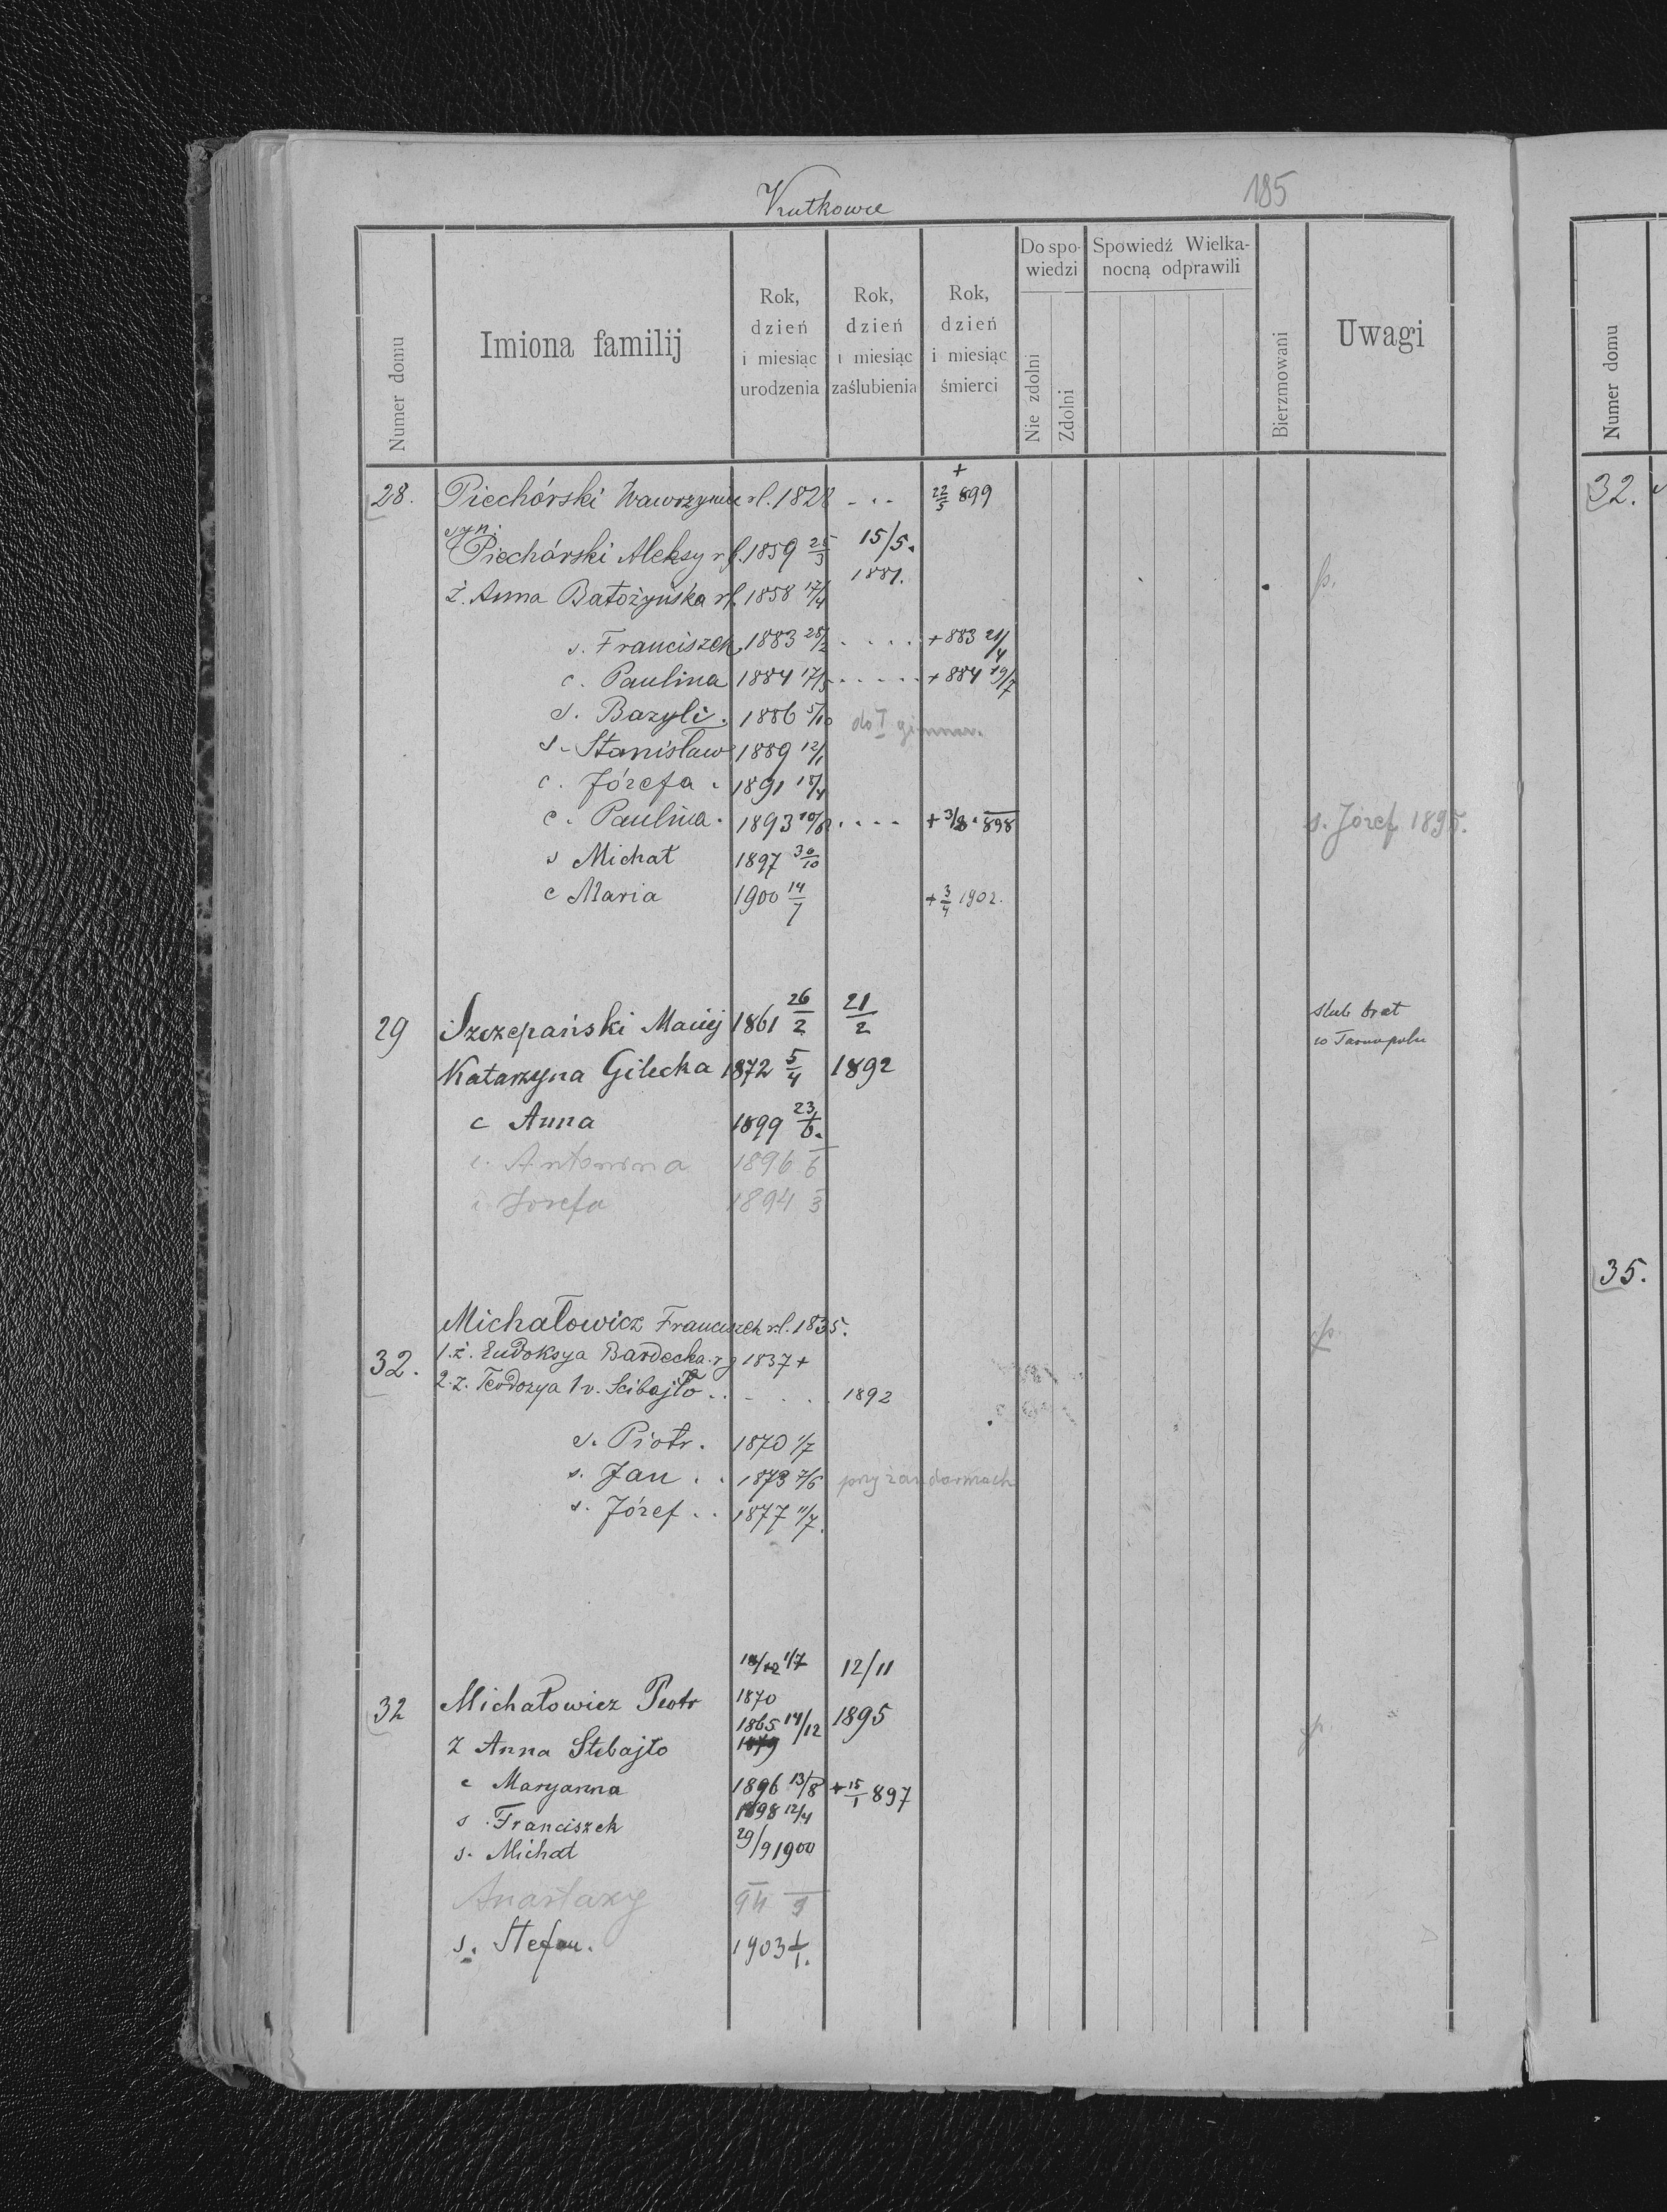 Krutkowce
185
Numer domu
Imiona familij
Rok,
dzień
i miesiąc
urodzenia
Rok,
dzień
i miesiąc
zaślubienia
Rok,
dzień
i miesiąc
śmierci
Do spo-
wiedzi
Nie zdolni
Zdolni
Spowiedź Wielka-
nocną odprawili
Bierzmowani
Uwagi
Numer domu
28. Piechórski Wawrzyniec rl. 1828 - . . + 22/5 899
syn
Piechórski Aleksy rl. 1859 25/3 15/5. 1881.
ż. Anna Batożyńska rl. 1858 17/4 p.
s. Franciszek 1883 28/2 . . . . + 883 21/4
c. Paulina 1884 17/5 . . . . . + 884 19/7
s. Bazyli. 1886 5/10 do I gimnaz.
s. Stanisław 1889 12/1
c. Józefa . 1891 18/4
c. Paulina . 1893 10/8 . . . . + 3/8 . 898 s. Józef 1895.
s Michał 1897 30/10
c Maria 1900 14/7 + 3/4 1902.
29 Szczepański Maciej 1861 26/2 21/2 slub brat
w Tarnopolu
Katarzyna Gilecka 1872 5/4 1892
c Anna 1899 23/6.
c. Antonina 1896 6
c Jozefa 1894 3
Michałowicz Franciszek rl. 1835.
32. 1. ż. Eudoksya Bardecka rg 1837 +
2. ż. Teodozya 1 v. Scibajło . . - . . . 1892
s. Piotr. 1870 1/7
s. Jan . . 1873 7/6 przy żandarmach
s. Józef . . 1877 11/7.
1/7 12/11
32 Michałowicz Piotr 1870 1895
1865 14/12
ż Anna Stebajło 1879
c Maryanna 1896 13/8 + 15/1 897
s Franciszek 1898 12/4
s. Michał 29/9 1900
Anastazy 94 9
s. Stefan. 1903 1/1.
32.
35.